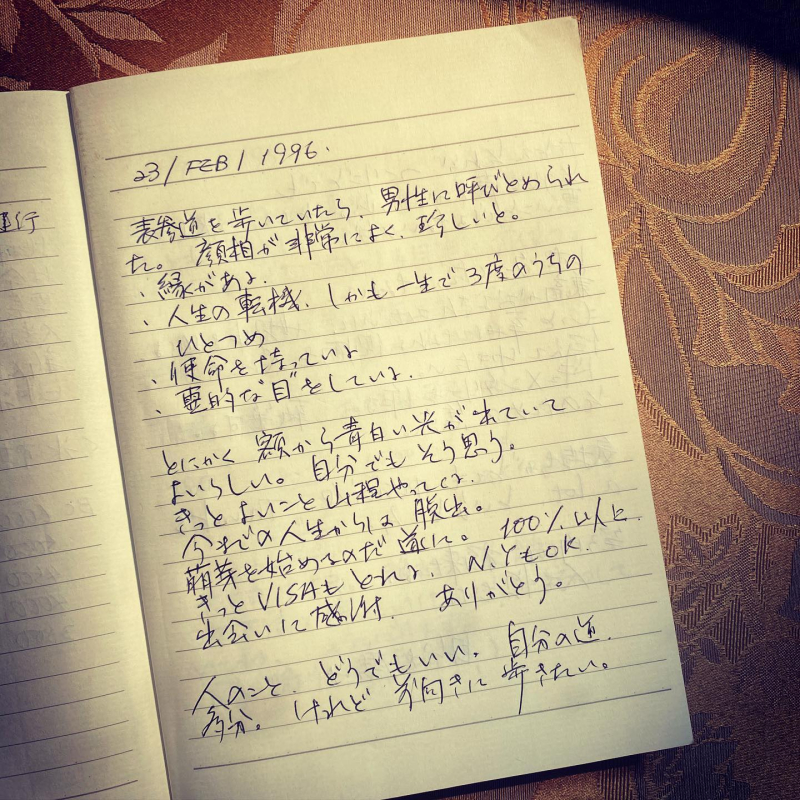 23/FEB/1996.
表参道を歩いていたら、男性に呼びとめられ
た。顔相が非常によく、珍しいと。
・縁がある.
・人生の転機、しかも一生で3度のうちの
ひとつめ
・使命を持っている
・霊的な"目"をしている.
とにかく額から青白い光が出ていて
よいらしい。自分でもそう思う。
きっとよいこと山程やってくる.
今までの人生からは脱出。
萌芽を始めるのだ道に。100%以上に
きっとVISAもとれる. N.YもOK.
出会いに感謝. ありがとう。
人のこと、どうでもいい。自分の道.
多分。けれど前向きに歩きたい。
運行